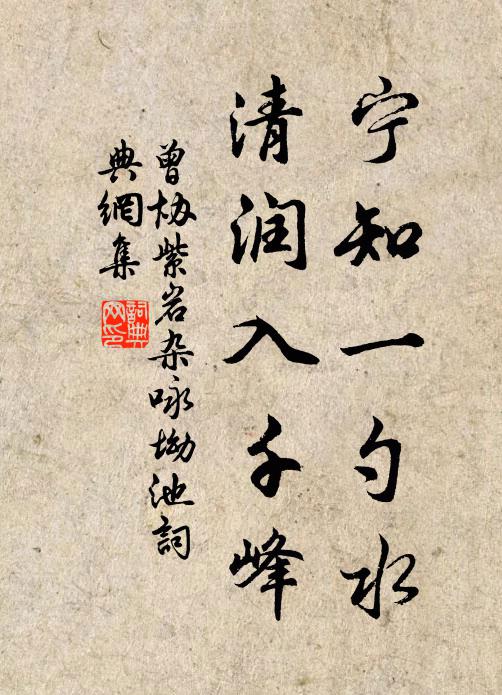 宁知一勺水
清润入千峰
曾协紫岩杂咏坳池詞
典網集
詞典网印